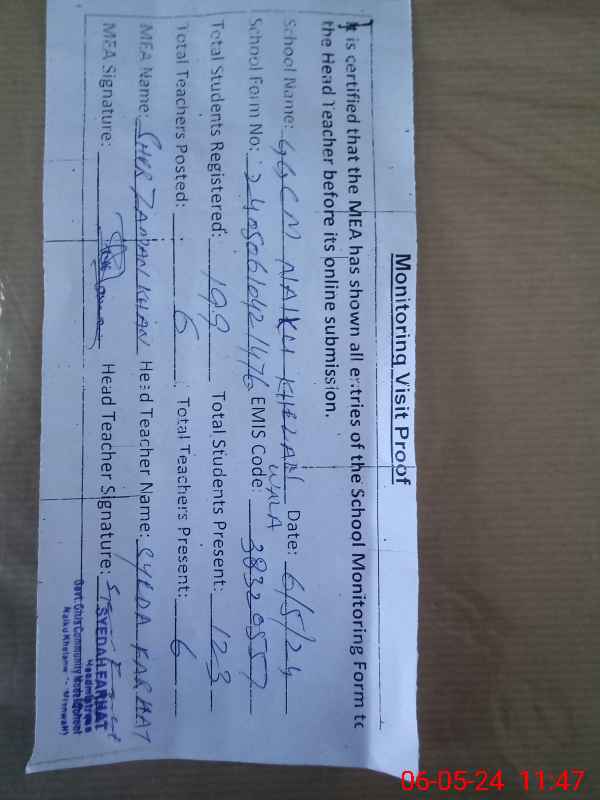 Monitoring Visit Proof
It is certified that the MEA has shown all entries of the School Monitoring Form to
the Head Teacher before its online submission.
School Name: GGCM NAIKU KHELAN WALA Date: 6/5/24
School Form No: 24050610421476 EMIS Code: 38320557
Total Students Registered: 199 Total Students Present: 123
Total Teachers Posted: 6 Total Teachers Present: 6
MEA Name: SHER ZAMAN KHAN Head Teacher Name: SYEDA FARHAT
MEA Signature: Head Teacher Signature:
SYEDAH FARHAT
Headmistress
Govt. Girls Community Model School
Naiku Khelanwala Mianwali
06-05-24 11:47